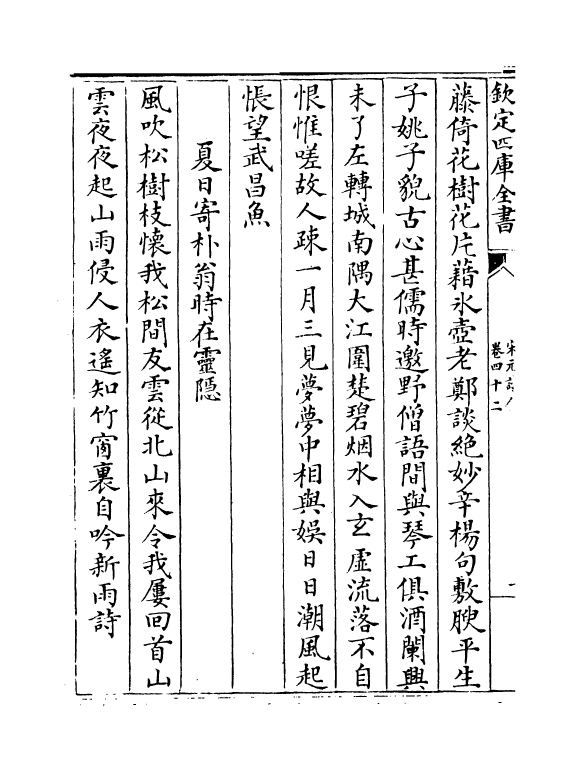 欽定四庫全書
卷四十二
二
藤倚花樹花片藉氷壺老鄭談絶妙辛楊句敷腴平生
子姚子貌古心甚儒時邀野僧語間與琴工俱酒闌興
未了左轉城南隅大江圍楚碧烟水入玄虛流落不自
恨惟嗟故人疎一月三見夢夢中相與娱日日潮風起
悵望武昌魚
夏日寄朴翁時在靈隠
風吹松樹枝懷我松間友雲從北山來令我屢回首山
雲夜夜起山雨侵人衣遙知竹窗裏自吟新雨詩